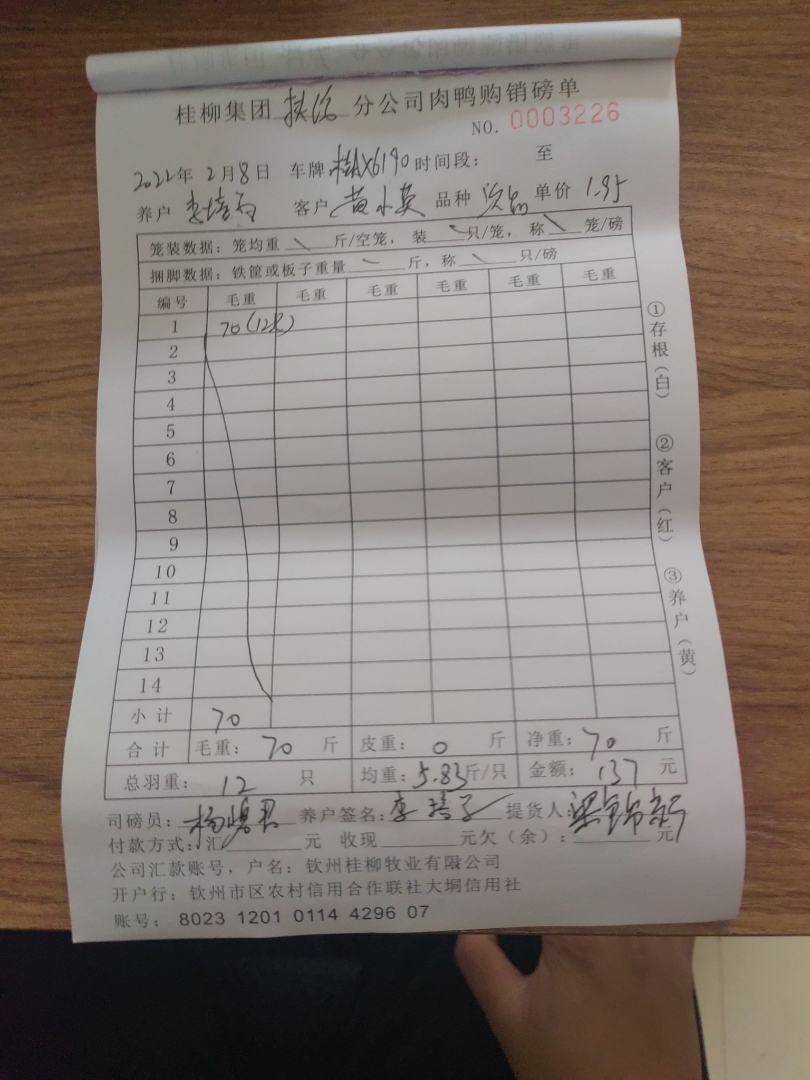 桂柳集团 扶绥 分公司肉鸭购销磅单
NO. 0003226
2022年 2月8日 车牌 桂AX6190 时间段： 至
养户 李培 客户 黄小英 品种 次品 单价 1.95
笼装数据：笼均重 斤/空笼，装 只/笼，称 笼/磅
捆脚数据：铁筐或板子重量 斤，称 只/磅
编号 毛重 毛重 毛重 毛重 毛重 毛重
1 70(12只)
2
3
4
5
6
7
8
9
10
11
12
13
14
小计 70
合计 毛重： 70 斤 皮重： 0 斤 净重： 70 斤
总羽重： 12 只 均重：5.83斤/只 金额： 137 元
司磅员： 养户签名： 李 提货人： 梁锦
付款方式：汇 元 收现 元欠（余）： 元
公司汇款账号，户名：钦州桂柳牧业有限公司
开户行：钦州市区农村信用合作联社大垌信用社
账号： 8023 1201 0114 4296 07
①存根（白） ②客户（红） ③养户（黄）